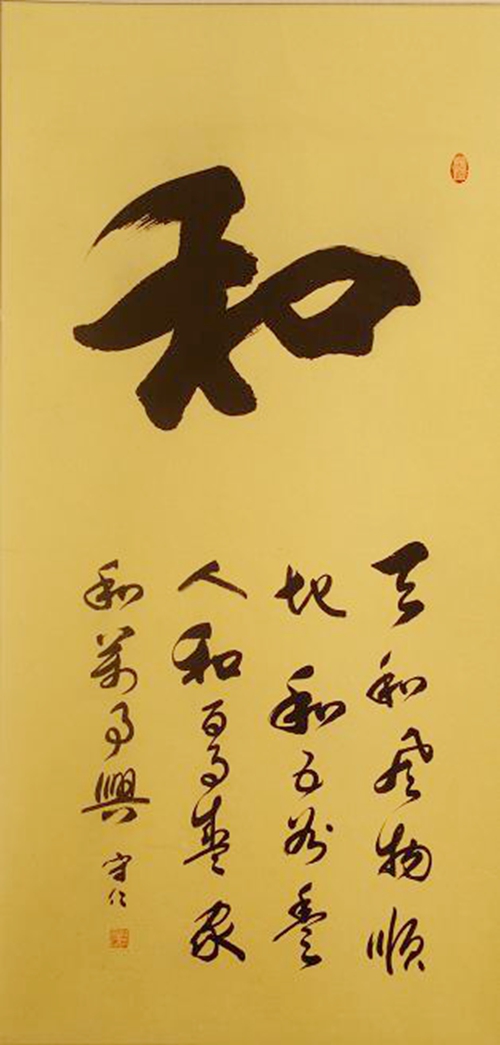 和
天和風物順
地和五谷豐
人和百事盛家
和萬事興
守仁